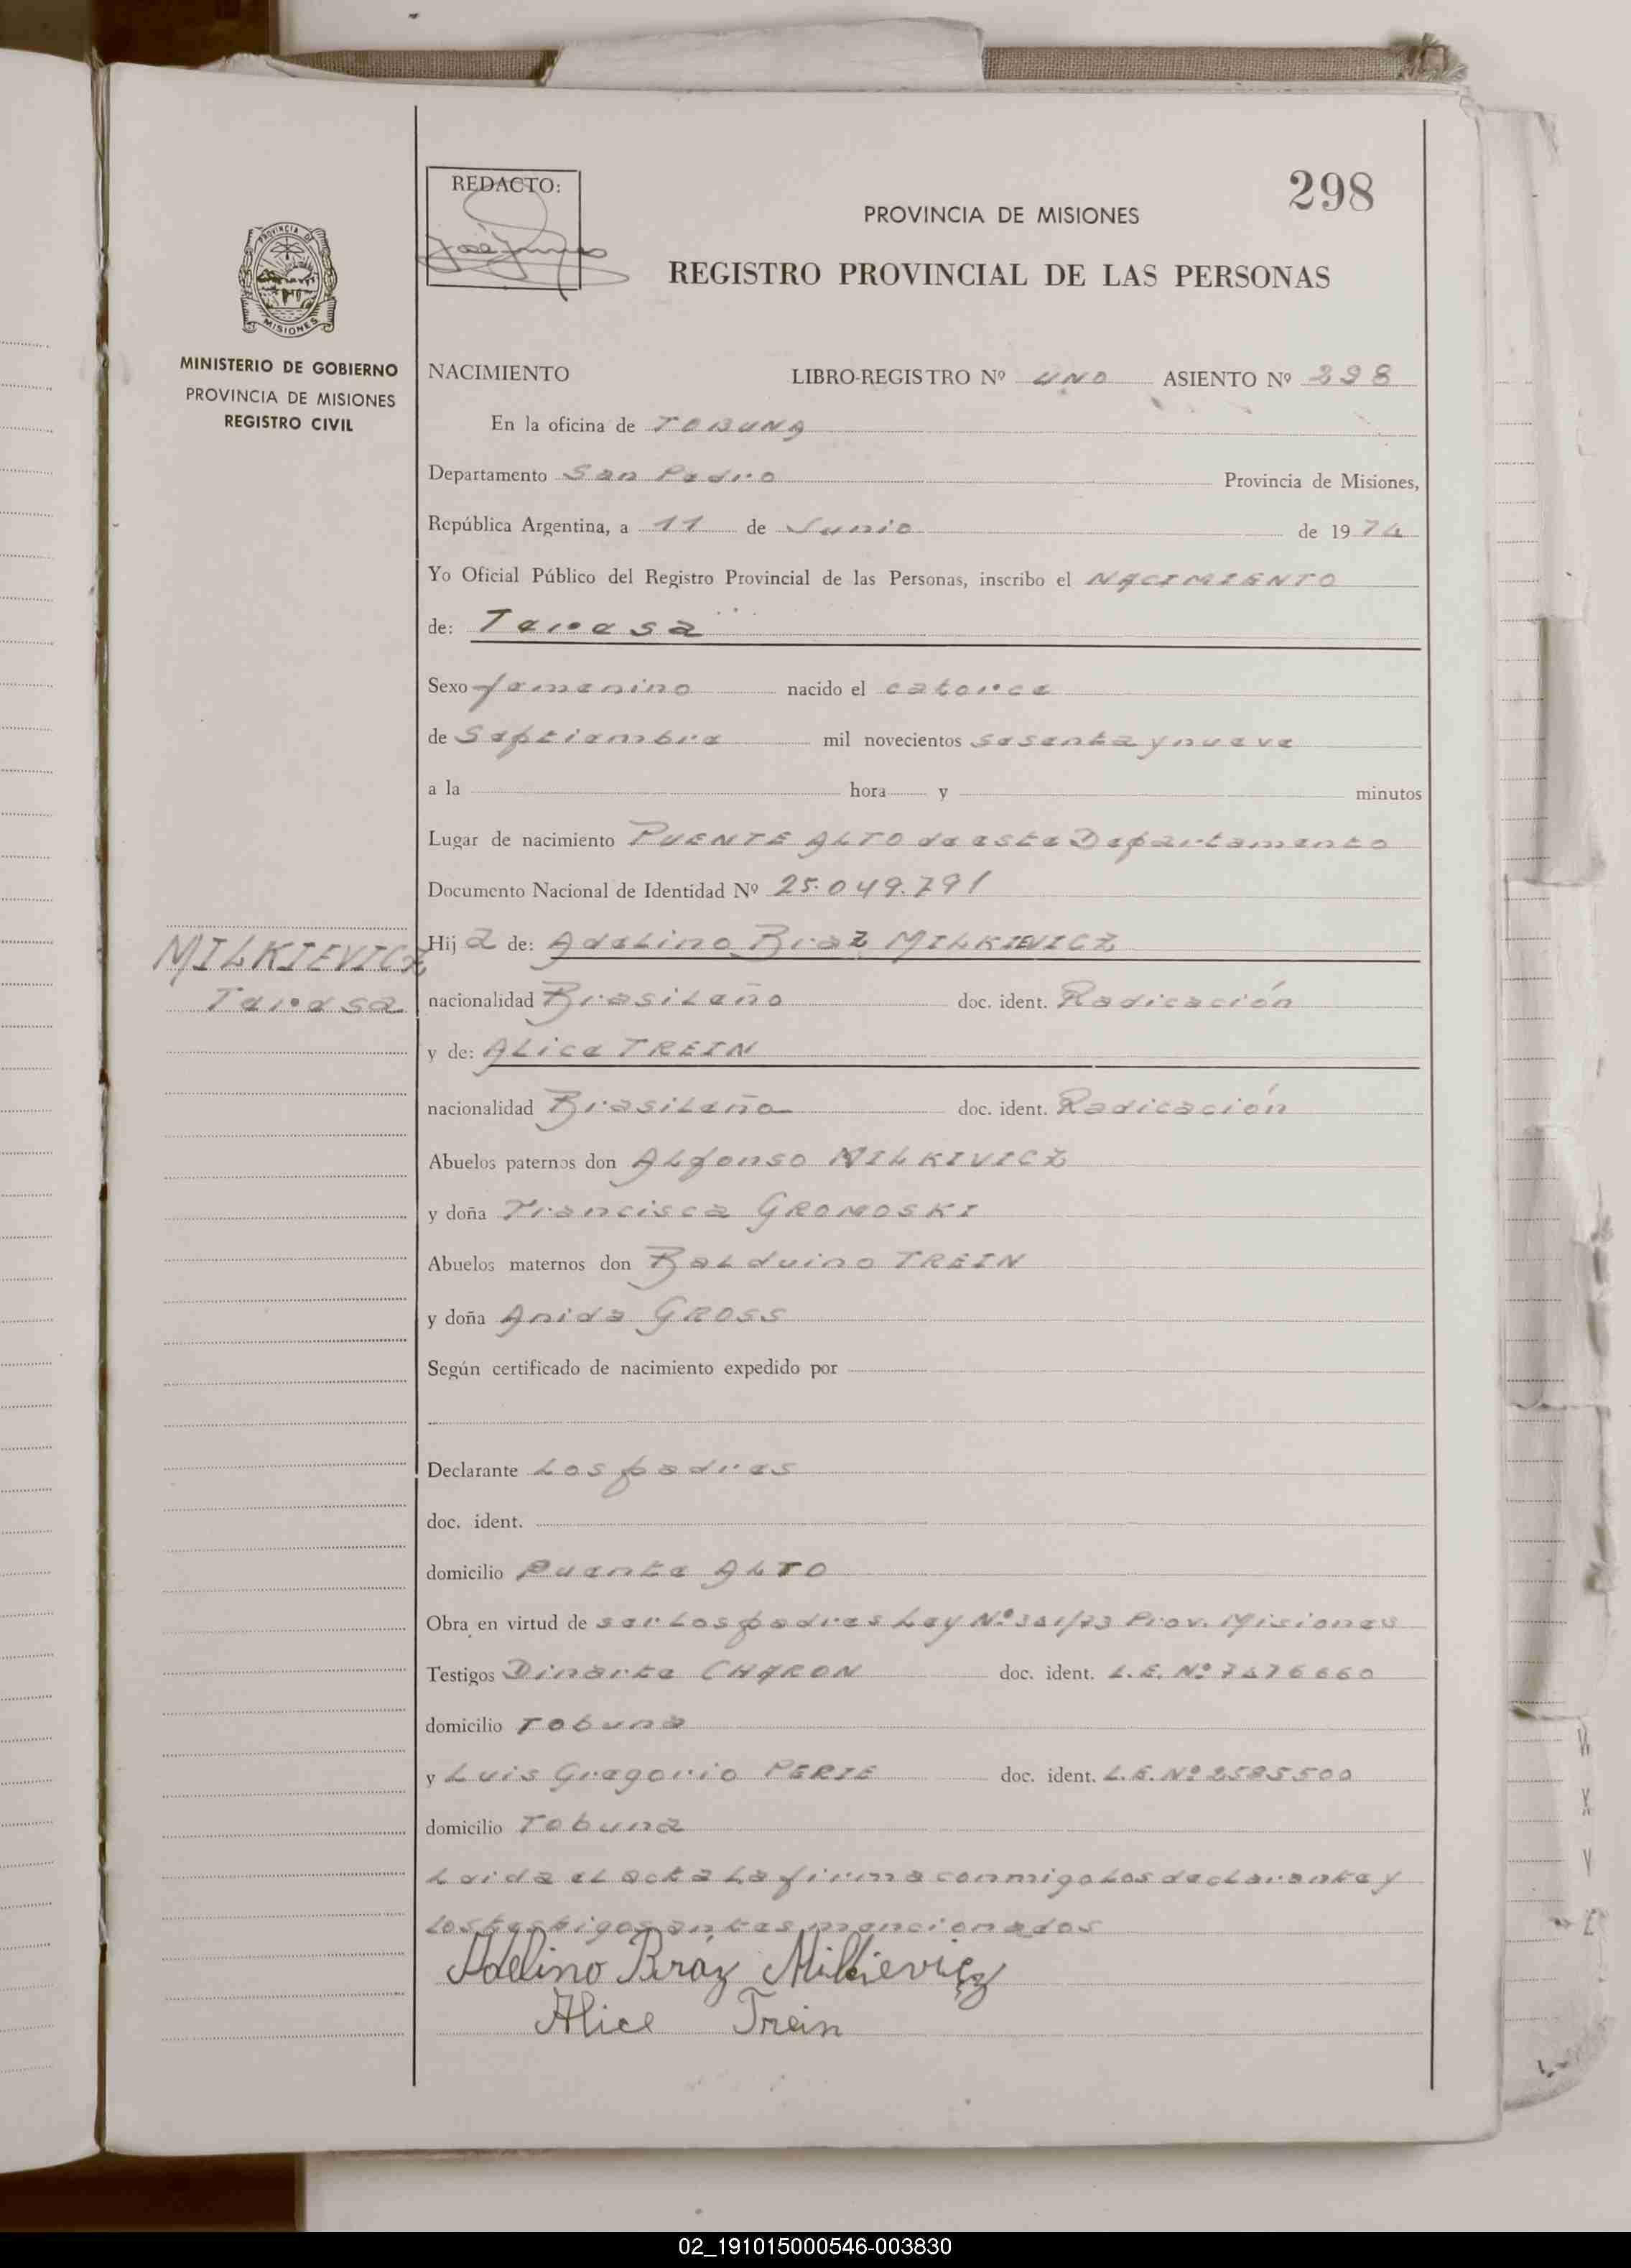 REDACTO:
298
PROVINCIA DE MISIONES
REGISTRO PROVINCIAL DE LAS PERSONAS
PROVINCIA DE
MISIONES
MINISTERIO DE GOBIERNO
PROVINCIA DE MISIONES
REGISTRO CIVIL
NACIMIENTO LIBRO-REGISTRO Nº UNO ASIENTO Nº 298
En la oficina de TOBUNA
Departamento San Pedro Provincia de Misiones,
República Argentina, a 11 de Junio de 1974
Yo Oficial Público del Registro Provincial de las Personas, inscribo el NACIMIENTO
de: Teresa
Sexo femenino nacido el catorce
de Septiembre mil novecientos sesenta y nueve
a la hora y minutos
Lugar de nacimiento PUENTE ALTO de este Departamento
Documento Nacional de Identidad Nº 25.049.791
Hija de: Adelino Braz MILKIEVICZ
MILKIEVICZ
Teresa
nacionalidad Brasileño doc. ident. Radicación
y de: Alice TREIN
nacionalidad Brasileña doc. ident. Radicación
Abuelos paternos don Alfonso MILKIVICZ
y doña Francisca GROMOSKI
Abuelos maternos don Balduino TREIN
y doña Anida GROSS
Según certificado de nacimiento expedido por
Declarante Los padres
doc. ident.
domicilio Puente ALTO
Obra en virtud de ser Los padres Ley Nº /73 Prov. Misiones
Testigos Dinarte CHARON doc. ident. L.E. Nº 7476660
domicilio Tobuna
y Luis Gregorio PERIE doc. ident. L.E. Nº 2585500
domicilio Tobuna
Leida el acta La firma conmigo Los declarante y
Los testigos antes mencionados
Adelino Braz Milkievicz
Alice Trein
02_191015000546-003830